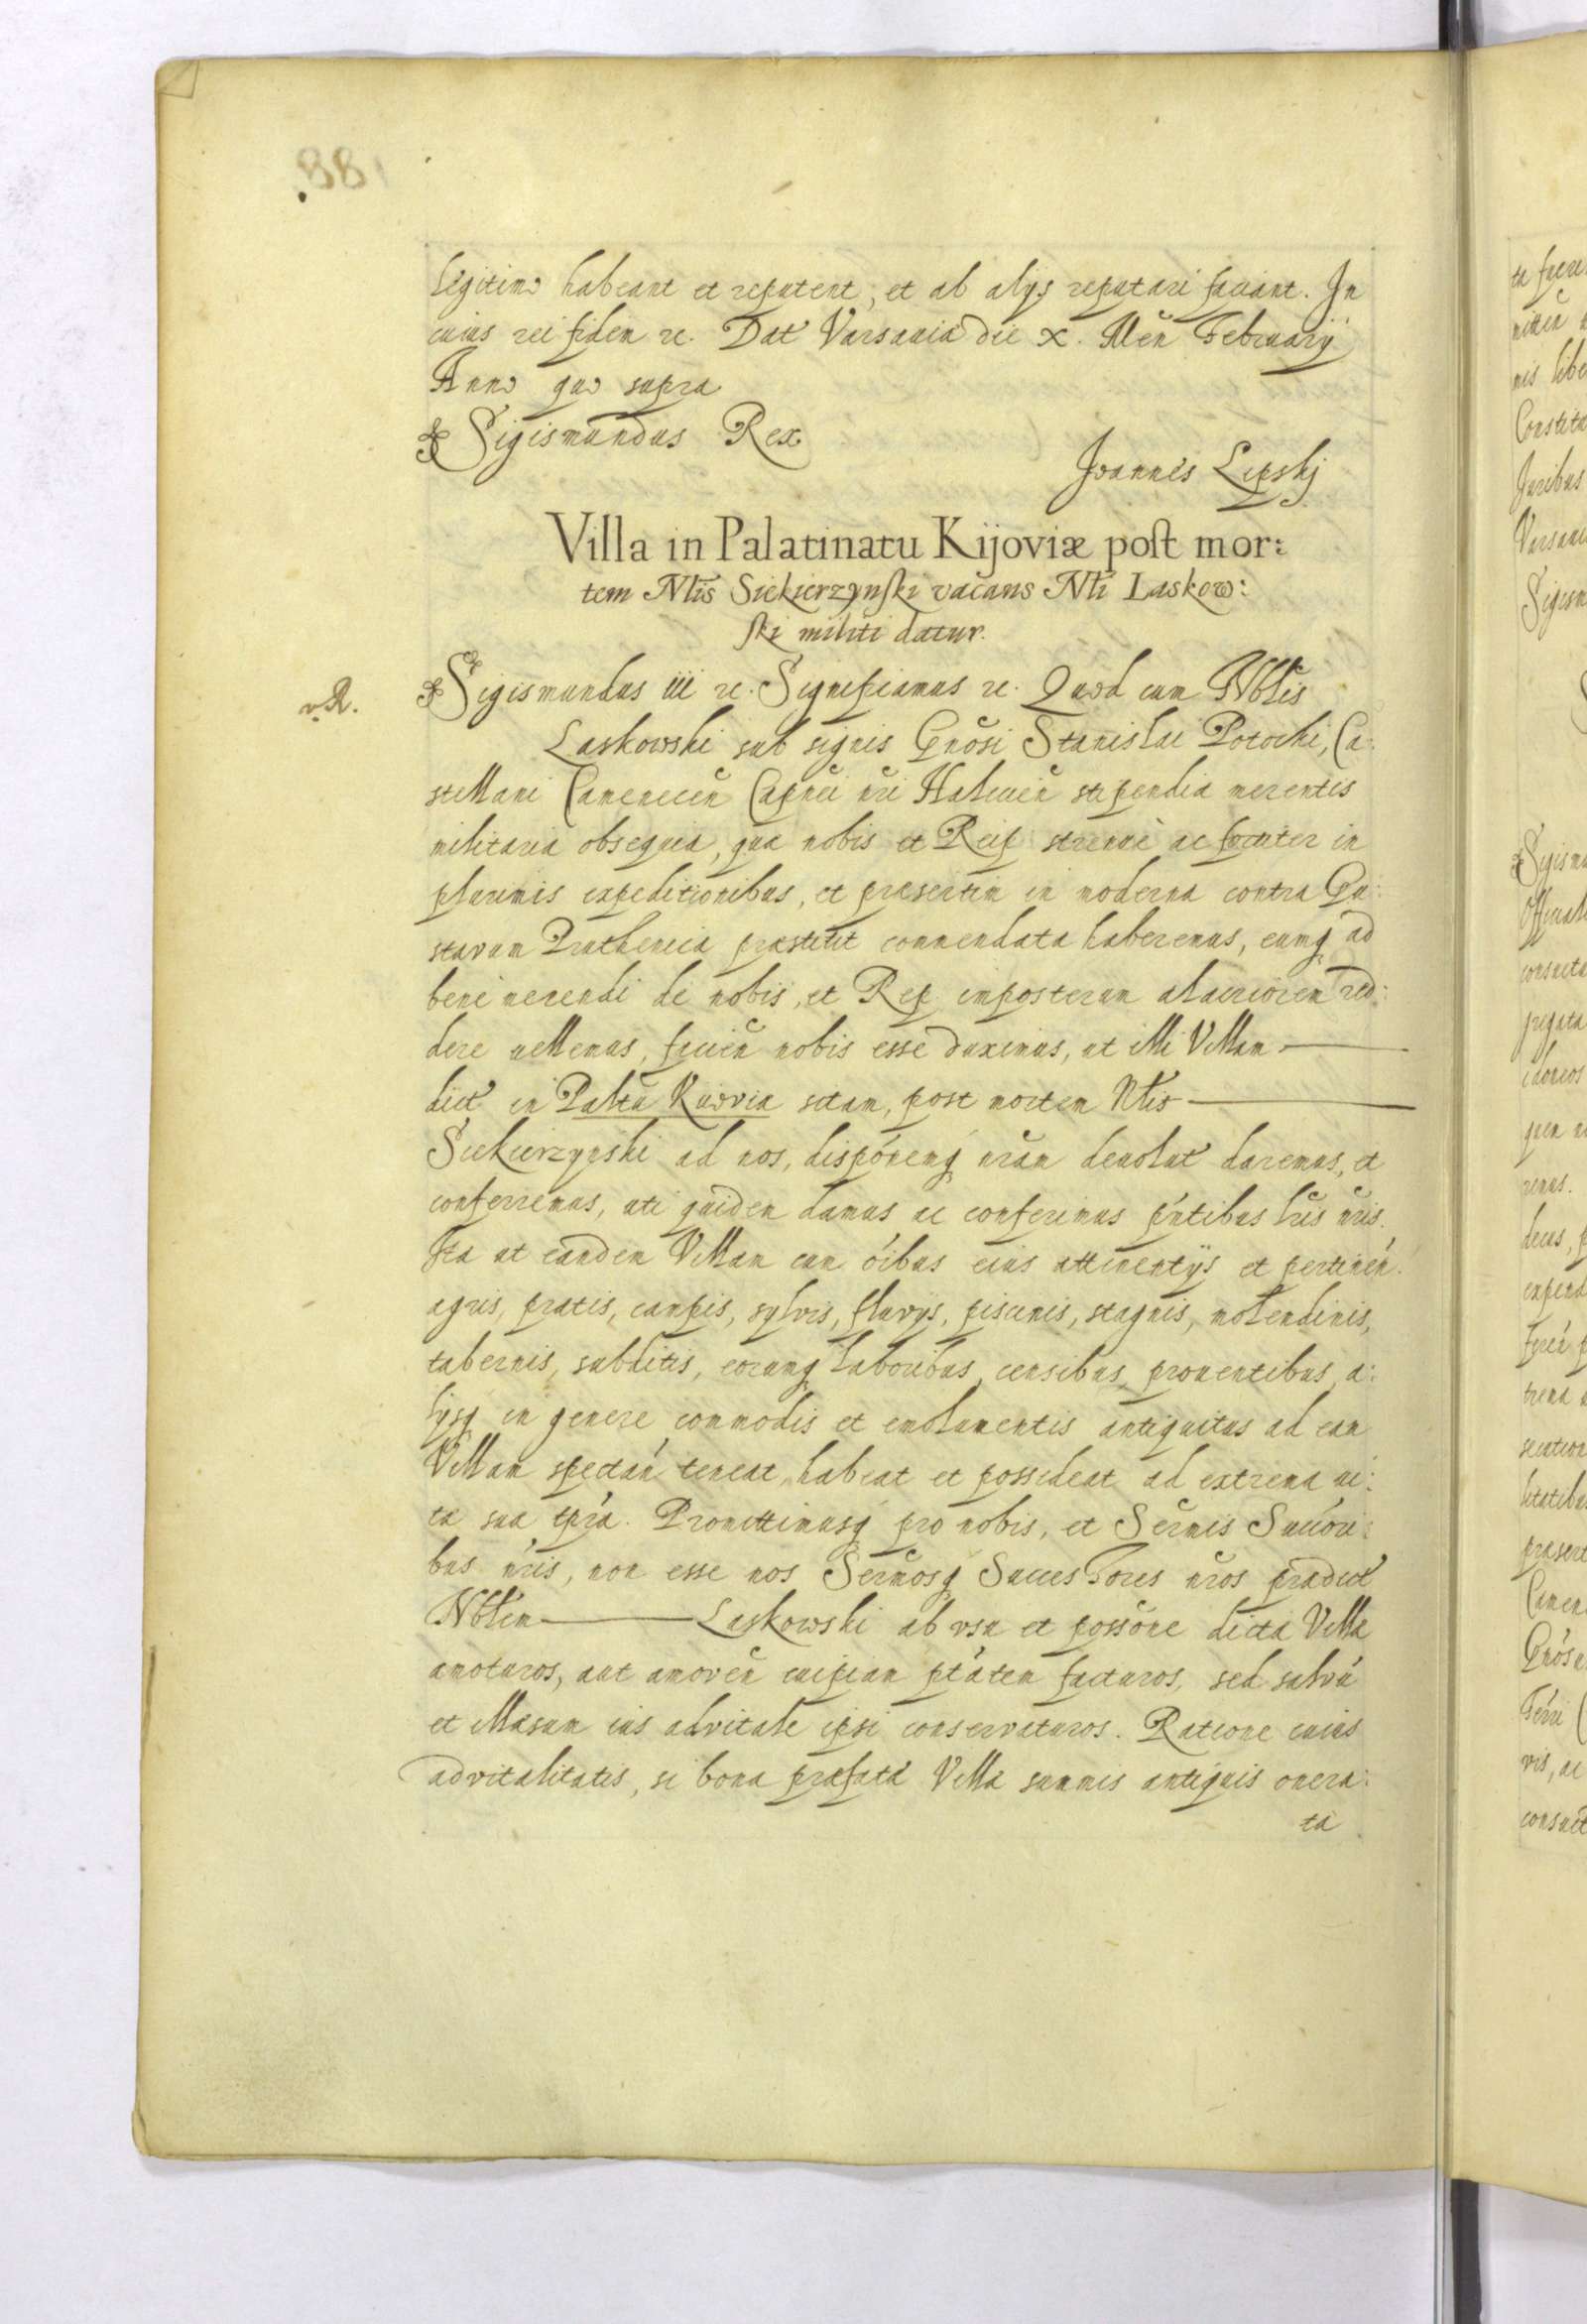 881
legitimo habeant et reputent, et ab alijs reputari faciant. In
cuius rei fidem rc. Dat Varsauia die X. Men Februarij
Anno quo supra
Sigismundus Rex
Joannes Lipskj
Villa in Palatinatu Kijoviæ post mor:
tem Nlis Siekierzynski vacans Nli Laskow:
ski militi datur.
v. R.
Sigismundus iii rc. Significamus rc. Quod cum Nblis
Laskowski sub signis Gnosi Stanislai Potocki, Ca:
stellani Camenecen Capnei nri Halicien stipendia merentis
militaria obsequia, qua nobis et Reip strenue ac fortiter in
plurimis expeditionibus, et præsertim in moderna contra Gu:
stavum Pruthenica præstitit commendata haberemus, eumq ad
bene merendi de nobis, et Rep imposterum alacriorem red:
dere uellemus, facien nobis esse duximus, ut illi Villam
dict in Paltu Kiiovia sitam, post mortem Nlis
Siekierzynski ad nos, disponemq nram deuolut daremus, et
conferremus, uti quidem damus ac conferimus pntibus lris nris.
Ita ut eandem Villam cum oibus eius attinentijs et pertinen.
agris, pratis, campis, sylvis, fluvijs, piscinis, stagnis, molendinis,
tabernis, subditis, eorumq laboribus, censibus, prouentibus, a:
lijsq in genere commodis et emolumentis antiquitus ad eam
Villam spectan teneat, habeat et possideat ad extrema ui:
ta sua tpra. Promittimusq pro nobis, et Sermis Succori:
bus nris, non esse nos Sermosq Successores nros prædict
Nblem Laskowski ab vsu et possone dicta Villa
amoturos, aut amoven cuipiam ptatem facturos, sed salvu
et illæsum ius advitale ipsi conservaturos. Ratione cuius
advitalitatis, si bona præfata Villa summis antiquis onera:
ta